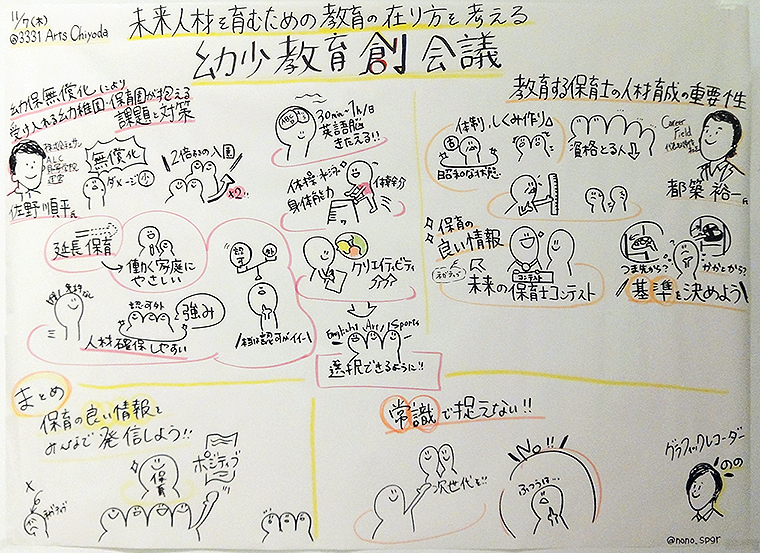 11/7(木)
@3331 Arts Chiyoda
未来人材を育むための教育の在り方を考える
幼少教育創会議
幼保無償化により
受け入れる幼稚園・保育園が抱える
課題と対策
運営
佐野順平氏
無償化
ダメージ小
2倍もの入園
×2!!
延長保育
働く家庭に
やさしい
認可外
強み
人材確保しやすい
30min~1h/日
英語脳
きたえる!!
体操
身体能力
体幹
クリエイティビティ
English/Art/Sports
選択できるように!!
教育する保育士の人材育成の重要性
体制、しくみ作り
昭和な状態
資格とる人↓
Career
Field
都築裕一氏
保育の
良い情報
ネガティブ
コンテスト
未来の保育士コンテスト
つま先から?
かかとから?
基準を決めよう
まとめ
保育の良い情報を
みんなで発信しよう!!
ネガティブ
保育
ポジティブ
常識で捉えない!!
次世代を!!
No!!
ふつうは…
グラフィックレコーダー
のの
@nono_spgr